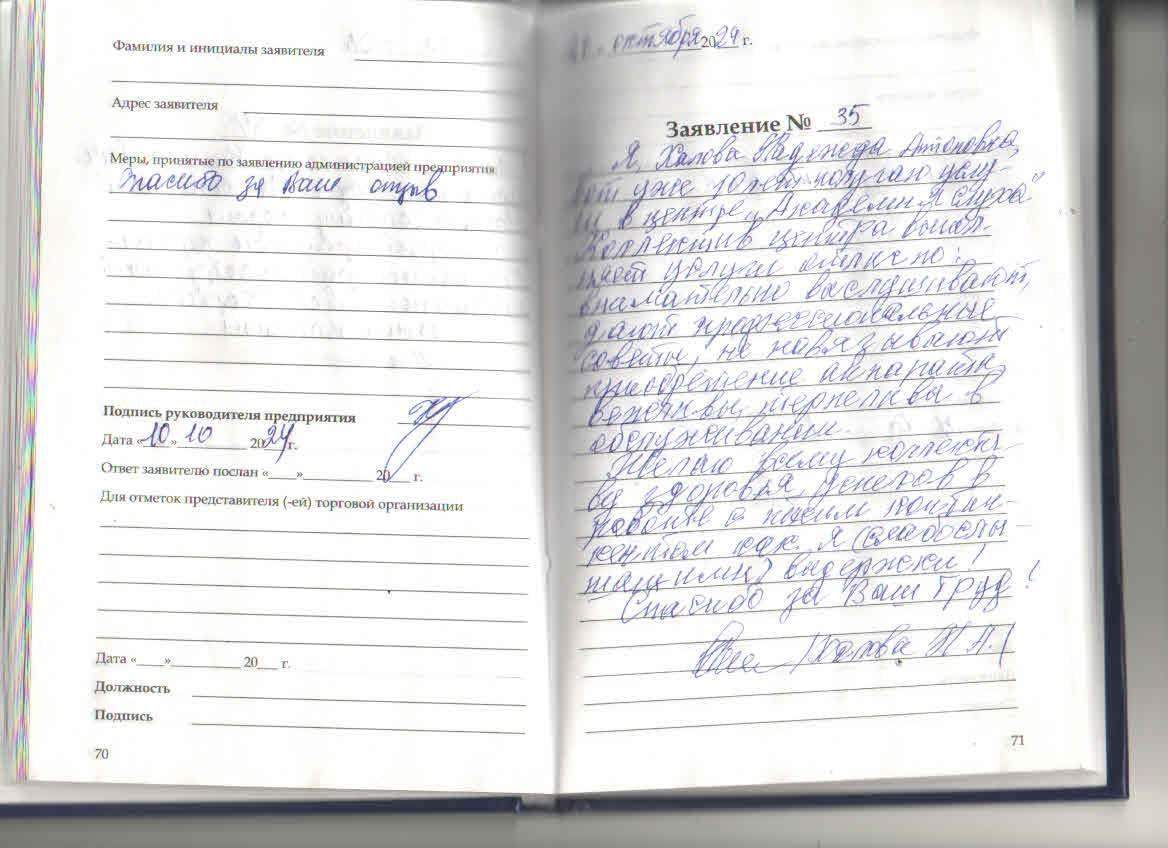 Фамилия и инициалы заявителя
Адрес заявителя
Меры, принятые по заявлению администрацией предприятия
Спасибо за Ваш отзыв
Подпись руководителя предприятия
Дата «10» 10 2024 г.
Ответ заявителю послан «___» 20___ г.
Для отметок представителя (-ей) торговой организации
Дата «___» 20___ г.
Должность
Подпись
70
октября 2024 г.
Заявление № 35
Я, Халова Надежда Антоновна,
вот уже 10 лет получаю услу-
ги в центре „Академия слуха"
Коллектив центра выпол-
няет услуги отлично:
внимательно выслушивают,
дают профессиональные
советы, не навязывают
приобретение аппарата,
вежливы, терпеливы в
обслуживании.
Желаю всему коллекти-
ву здоровья, успехов в
работе с таким контин-
гентом как я (слабослы-
шащими) выдержки!
Спасибо за Ваш труд!
Халова Н А.
71